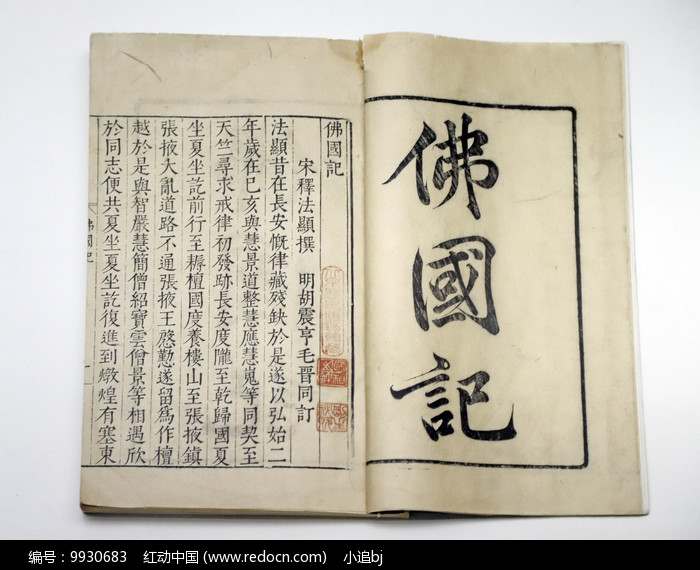 佛國記
佛國記
宋釋法顯撰　明胡震亨毛晉同訂
法顯昔在長安慨律藏殘缺於是遂以弘始二
年歲在已亥與慧景道整慧應慧嵬等同契至
天竺尋求戒律初發跡長安度隴至乾歸國夏
坐夏坐訖前行至耨檀國度養樓山至張掖鎮
張掖大亂道路不通張掖王慇懃遂留為作檀
越於是與智嚴慧簡僧紹寶雲僧景等相遇欣
於同志便共夏坐夏坐訖復進到燉煌有塞東
佛國記
编号：9930683 红动中国 (www.redocn.com) 小追bj